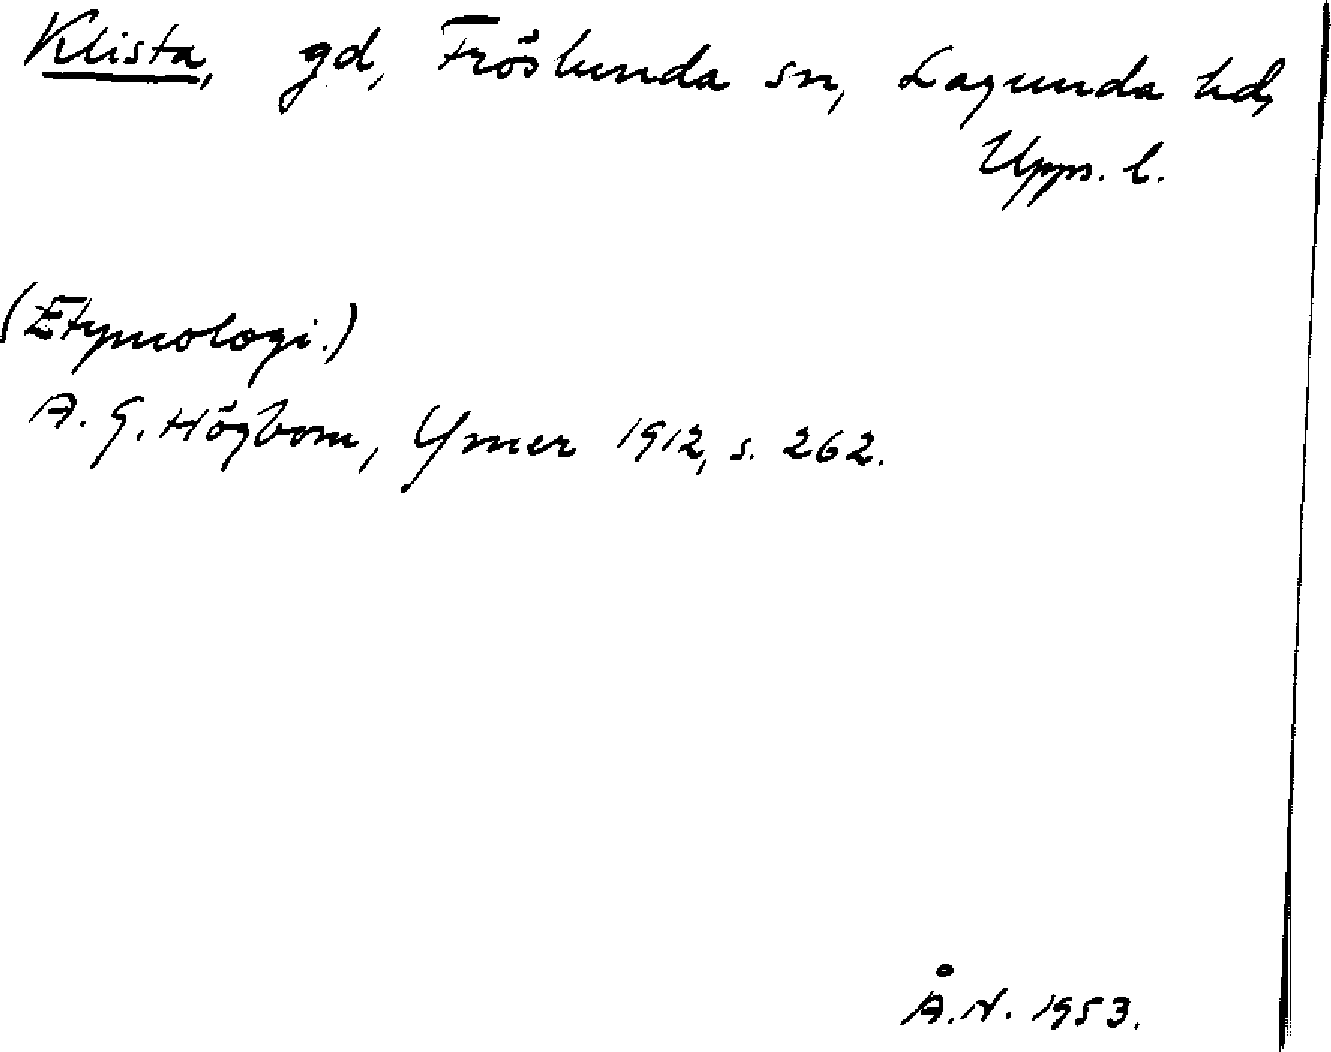 Klista, gd, Fröslunda sn, Lagunda hd,
Upps. l.
(Etymologi.)
A. G. Högbom, Ymer 1912, s. 262.
Å.N. 1953.